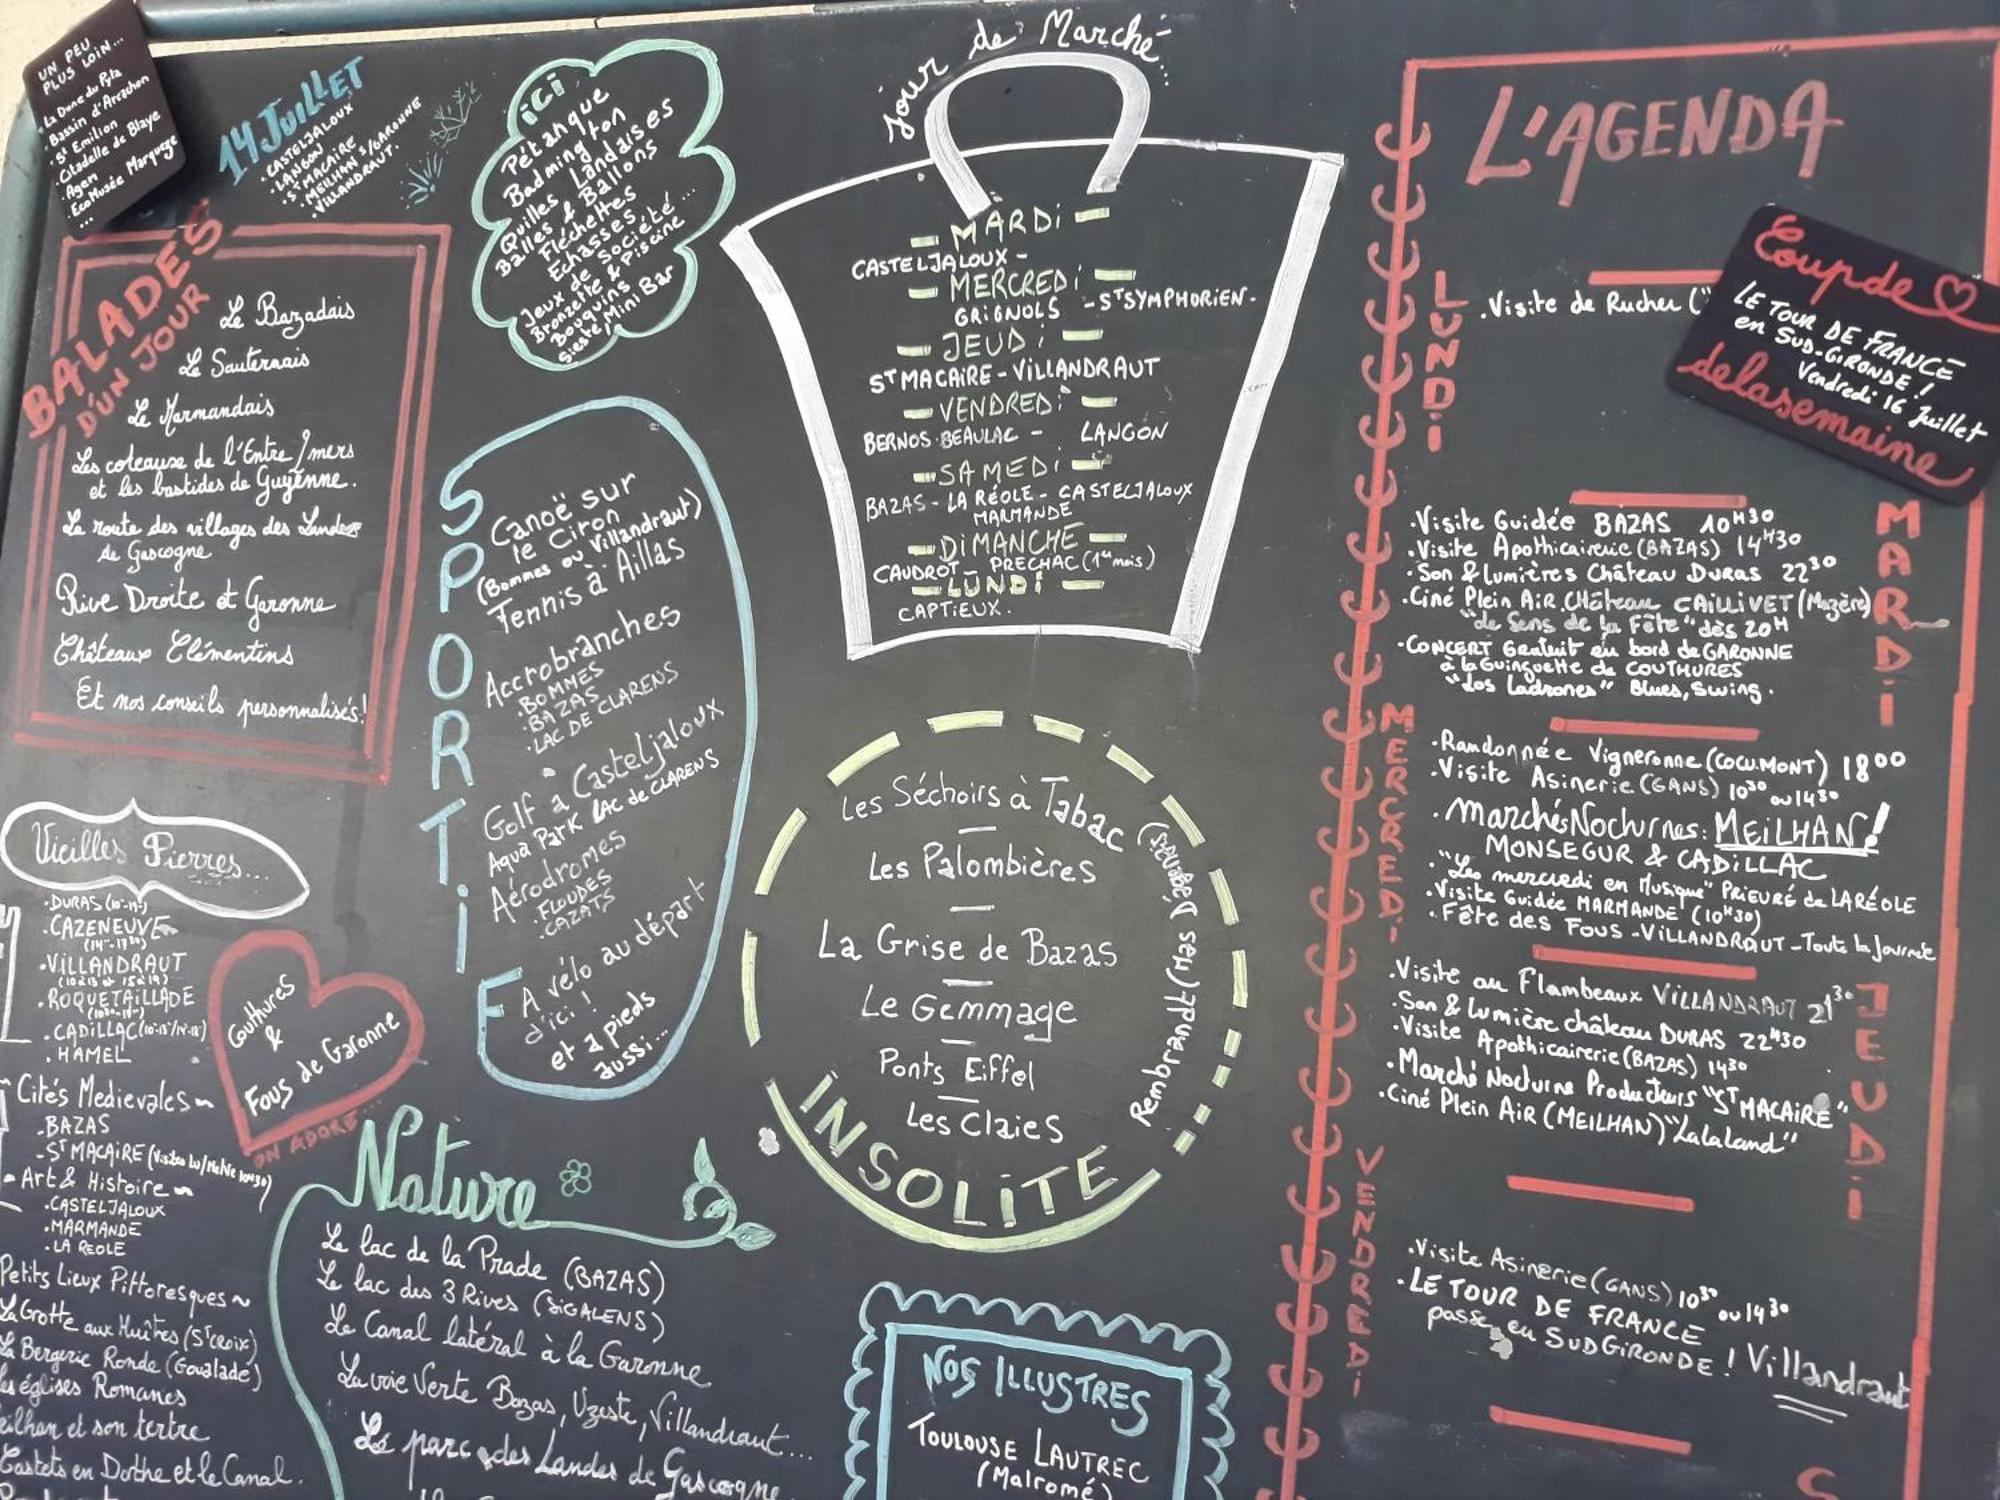 UN PEU
PLUS LOIN...
. La Dune du Pyla
. Bassin d'Arcachon
. St Emilion
. Citadelle de Blaye
. Agen
. EcoMusée Marquèze
...
14 JUILLET
. CASTELJALOUX
. LANGON
. ST MACAIRE
. MEILHAN S/GARONNE
. VILLANDRAUT.
BALADES
D'UN JOUR
Le Bazadais
Le Sauternais
Le Marmandais
Les coteaux de l'Entre 2 mers
et les bastides de Guyenne.
La route des villages des Landes
de Gascogne
Rive Droite et Garonne
Châteaux Clémentins
Et nos conseils personnalisés!
ici
Pétanque
Badmington
Quilles Landaises
Balles & Ballons
Fléchettes
Echasses
Jeux de Société...
Bronzette & Piscine
Bouquins
Sieste, Mini Bar
SPORTiF
Canoë sur
le Ciron
(Bommes ou Villandraut)
Tennis à Aillas
Accrobranches
. BOMMES
. BAZAS
. LAC DE CLARENS
Golf a Casteljaloux
Aqua Park LAC de CLARENS
Aérodromes
. FLOUDES
. CAZATS
A vélo au départ
d'ici !
et a pieds
aussi...
Jour de Marché...
MARDi
CASTELJALOUX -
MERCREDi
GRiGNOLS - ST SYMPHORiEN -
JEUDi
ST MACAIRE - ViLLANDRAUT
VENDREDi
BERNOS-BEAULAC - LANGON
SAMEDi
BAZAS - LA RÉOLE - CASTELJALOUX
MARMANDE
DiMANCHE
CAUDROT - PRECHAC (1er mois)
LUNDi
CAPTiEUX.
Les Séchoirs à Tabac
Les Palombières
La Grise de Bazas
Le Gemmage
Ponts Eiffel
Les Claies
Rembrandt (Mas D'Agenais)
iNSOLiTE
Vieilles Pierres...
. DURAS
. CAZENEUVE
. ViLLANDRAUT
. ROQUETAiLLADE
. CADiLLAC
. HAMEL
Cités Medievales
- BAZAS
- ST MACAiRE
- Art & Histoire
. CASTELJALOUX
. MARMANDE
. LA REOLE
Petits Lieux Pittoresques
La Grotte aux Huîtres (ST CROiX)
La Bergerie Ronde (Goualade)
les églises Romanes
Meilhan et son tertre
Castets en Dorthe et le Canal.
Couthures
&
Fous de Garonne
ON ADORE...
Nature
Le lac de la Prade (BAZAS)
Le lac des 3 Rives (SiGALENS)
Le Canal latéral à la Garonne
La voie Verte Bazas, Uzeste, Villandraut...
Le parc des Landes de Gascogne
NOS ILLUSTRES
TOULOUSE LAUTREC
(Malromé)
L'AGENDA
Coup de
LE TOUR DE FRANCE
en SUD-GIRONDE !
Vendredi 16 Juillet
de la semaine
LUNDi
. Visite de Rucher
MARDi
. Visite Guidée BAZAS 10H30
. Visite Apothicairerie (BAZAS) 14H30
. Son & lumières Château DURAS 22 30
. Ciné Plein AiR Château CAILLiVET (Mazère)
"Le Sens de la Fête" dès 20H
. CONCERT Gratuit en bord de GARONNE
à la Guinguette de COUTHURES
"Los Ladrones" Blues, Swing.
MERCREDi
. Randonnée Vigneronne (COCUMONT) 18 00
. Visite Asinerie (GANS) 10 30 ou 14 30
. Marchés Nocturnes: MEiLHAN !
MONSEGUR & CADiLLAC
. "Les mercredi en Musique" PRiEURÉ de LA RÉOLE
. Visite Guidée MARMANDE (10H30)
. FÊte des Fous - ViLLANDRAUT - Toute la Journée
JEUDi
. Visite au Flambeaux ViLLANDRAUT 21 30
. Son & lumière château DURAS 22H30
. Visite Apothicairerie (BAZAS) 14 30
. Marché Nocturne Producteurs "ST MACAiRE"
. Ciné Plein AiR (MEiLHAN) "Lalaland"
VENDREDi
. Visite Asinerie (GANS) 10 30 ou 14 30
. LE TOUR DE FRANCE
passe en SUD GiRONDE ! Villandraut